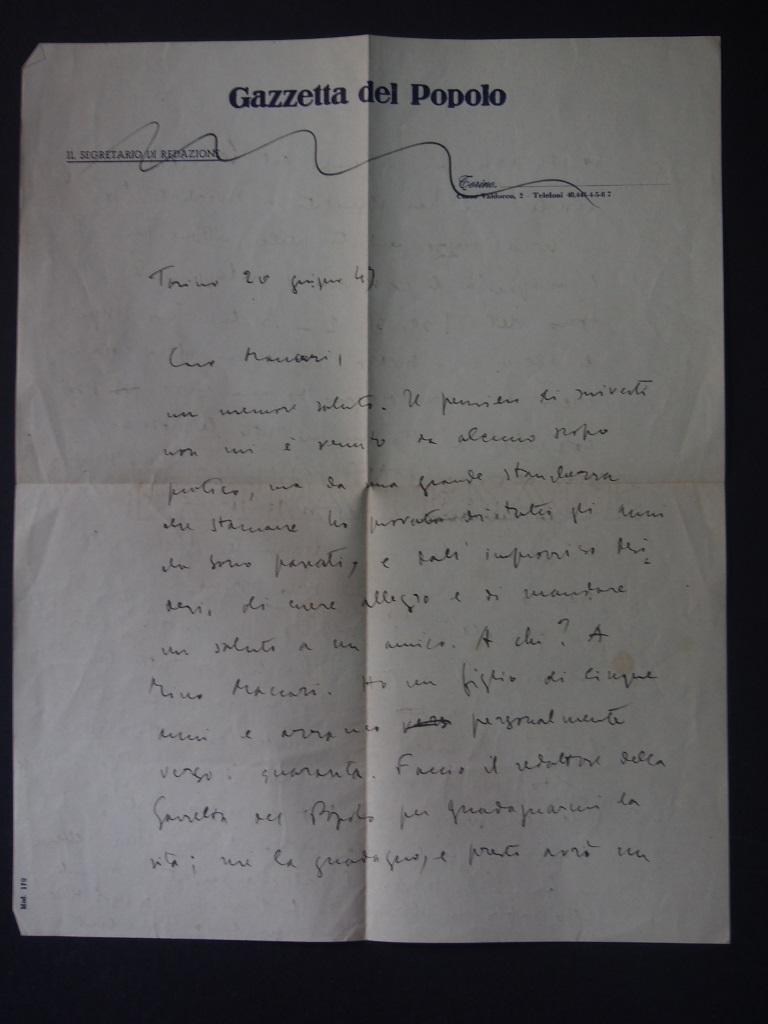 Gazzetta del Popolo
IL SEGRETARIO DI REDAZIONE
Torino,
Corso Valdocco, 2 - Telefoni
Torino 20 giugno 47
Caro Maccari,
un memore saluto. Il pensiero di scriverti
non mi è venuto da alcuno scopo
pratico, ma da una grande stanchezza
che stamane ho provato di tutti gli anni
che sono passati, e dall' improvviso desi
derio, di essere allegro e di mandare
un saluto a un amico. A chi? A
Mino Maccari. Ho un figlio di cinque
anni e arranco personalmente
verso i quaranta. Faccio il redattore della
Gazzetta del Popolo per guadagnarmi la
vita; me la guadagno, e presto avrò un
Mod. 119